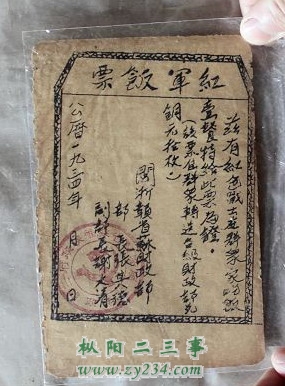 紅軍飯票
茲有紅色戰士在群眾家吃飯
壹餐特給此票為證。
(該票自群眾轉送各級財政部兌
銅元拾枚。)
閩浙贛省蘇財政部
部長張其德
副部長謝文清
公曆一九三四年 月 日
枞阳二三事
www.zy234.com